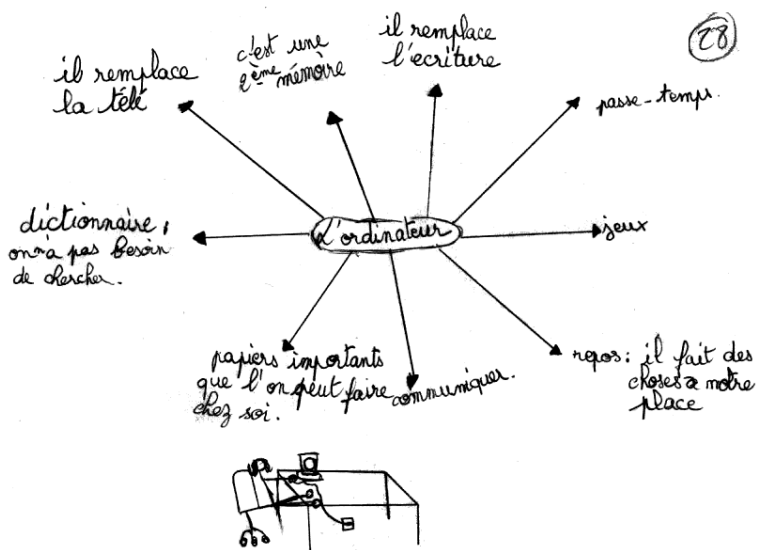 28
il remplace
la télé
c'est une
2ème mémoire
il remplace
l'ecriture
passe-temps.
dictionnaire,
on n'a pas besoin
de chercher.
L'ordinateur
jeux
papiers importants
que l'on peut faire
chez soi.
communiquer.
repos: il fait des
choses a notre
place